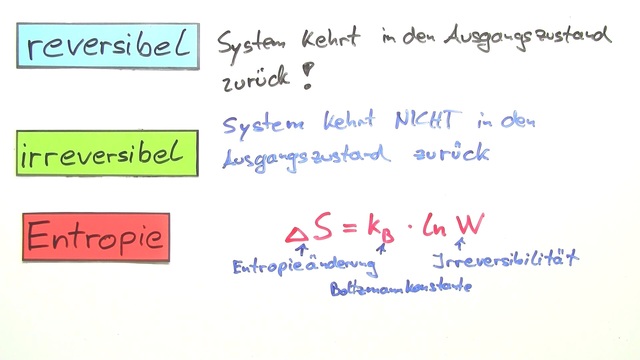 reversibel
System kehrt in den Ausgangszustand
zurück!
irreversibel
System kehrt NICHT in den
Ausgangszustand zurück
Entropie
ΔS = kB · ln W
Entropieänderung
Irreversibilität
Boltzmannkonstante